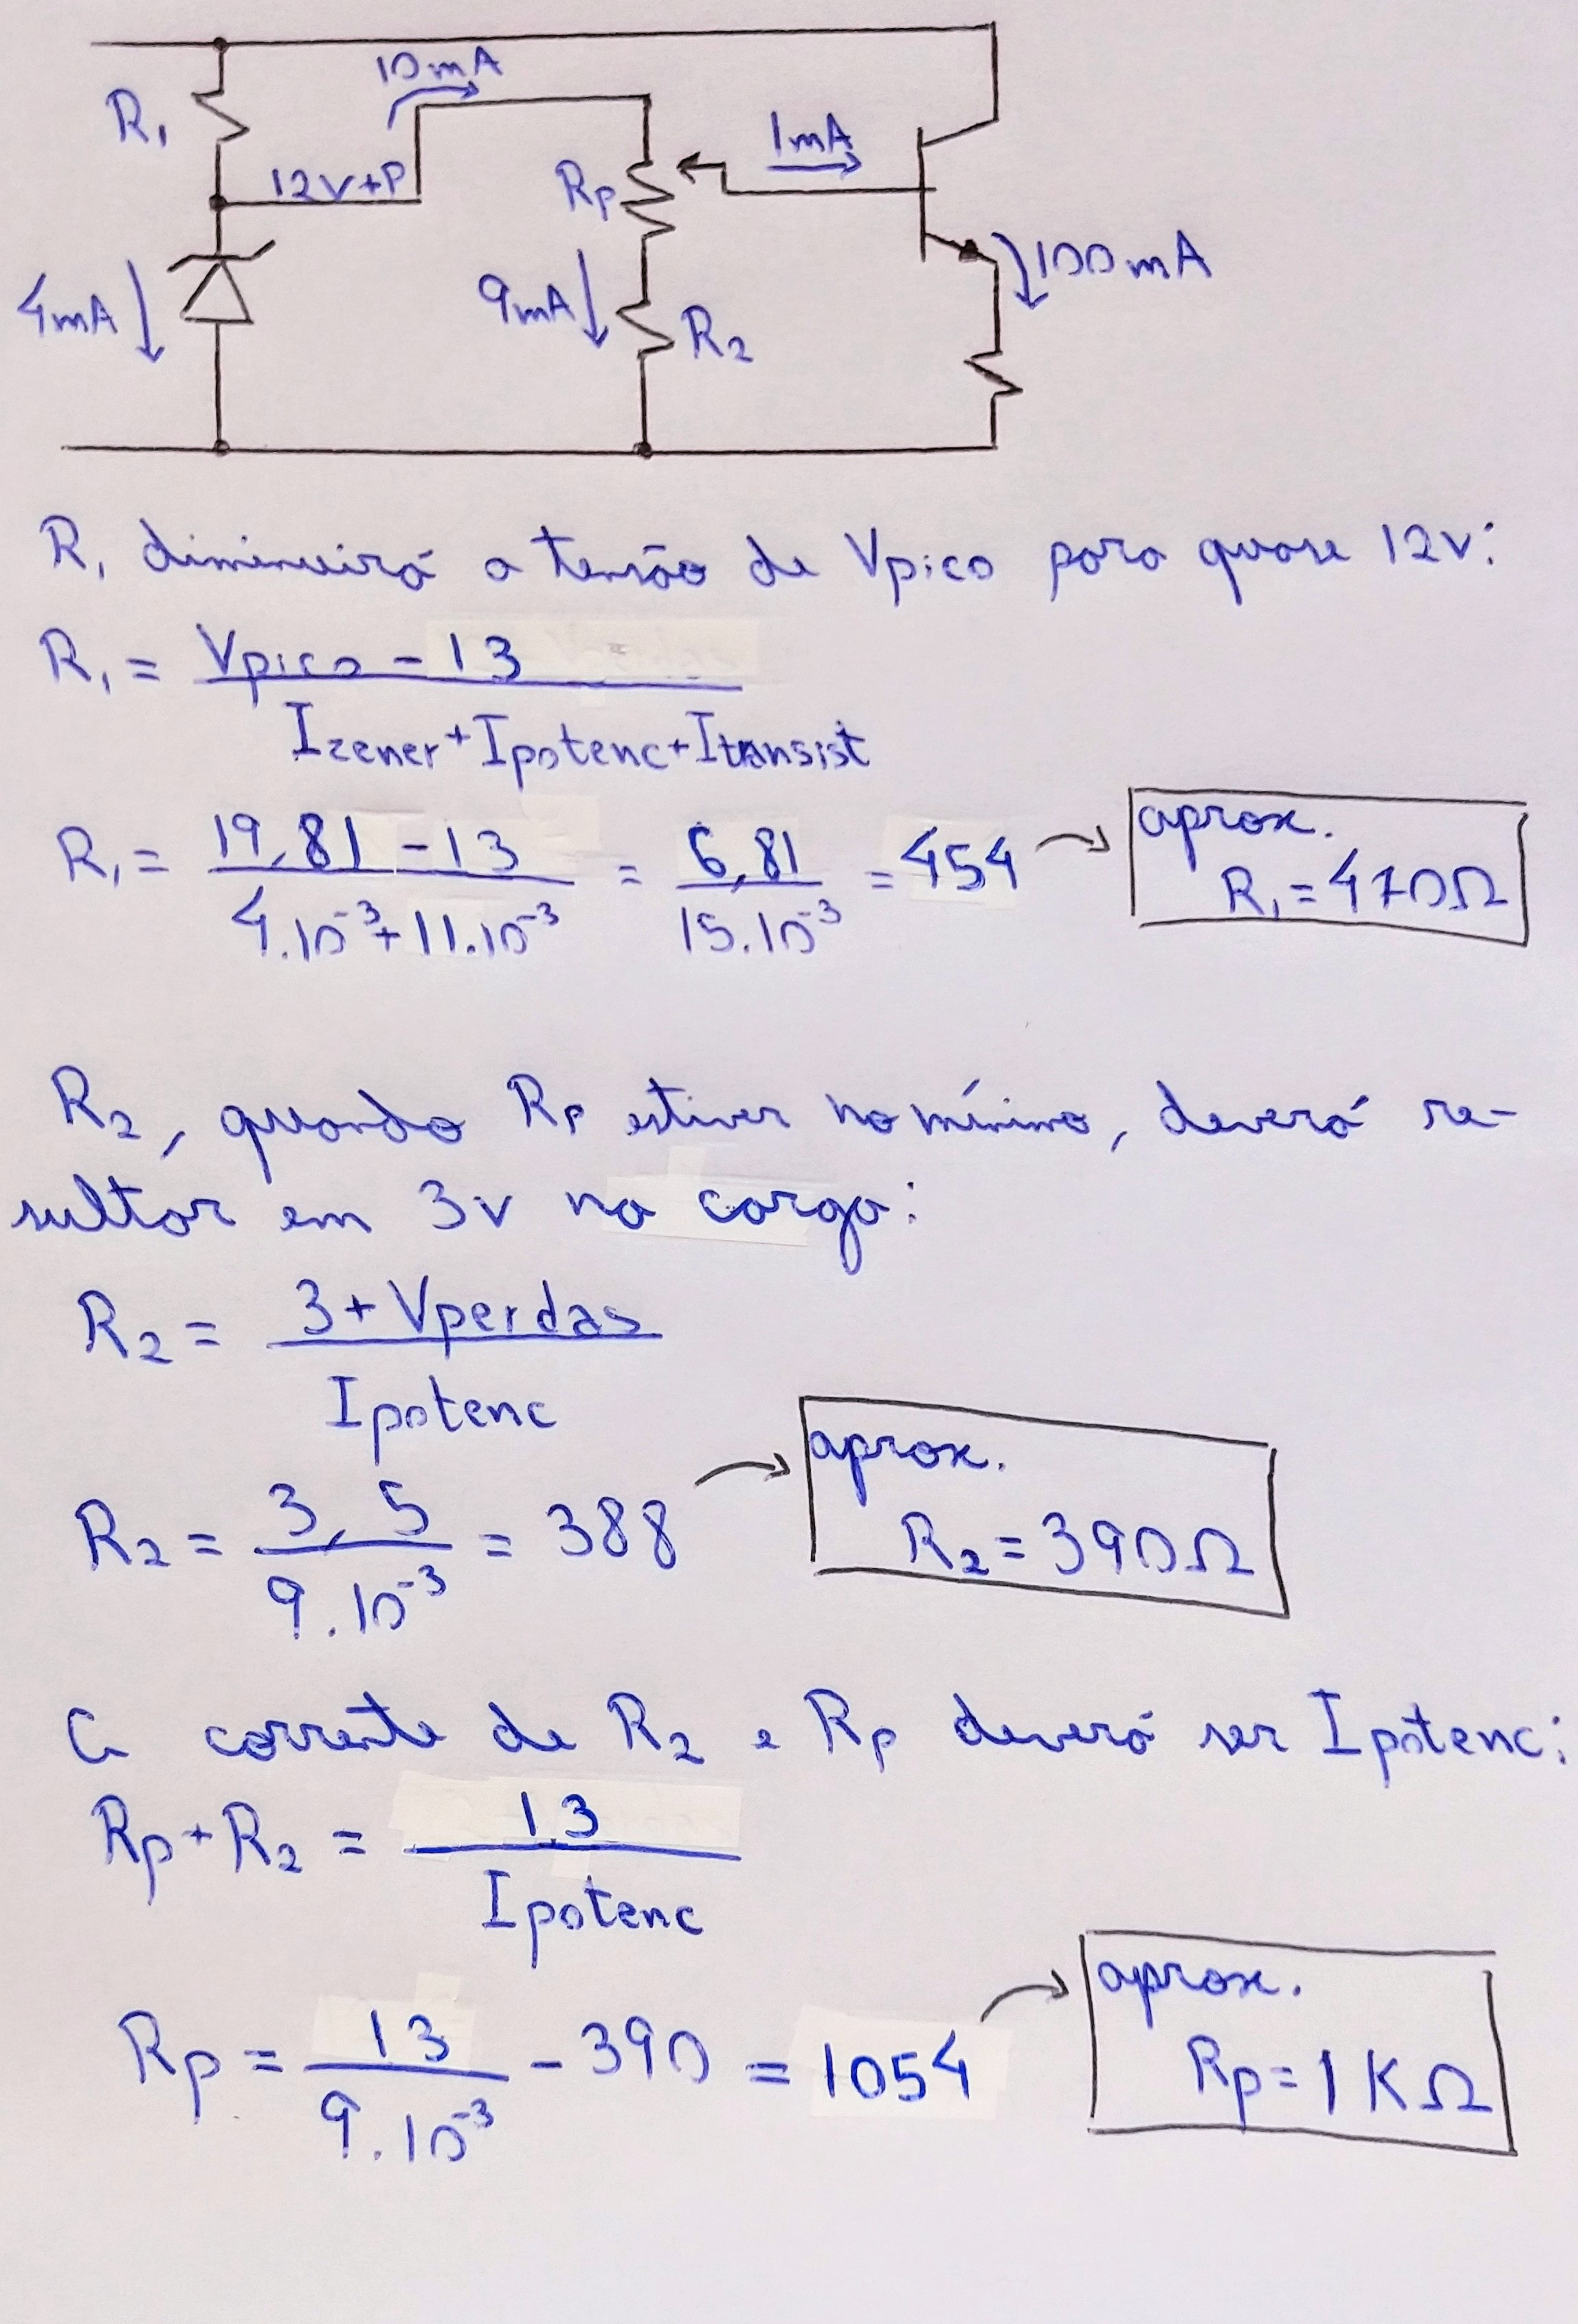 10mA
R₁
1mA
12V+P
Rp
100mA
4mA
9mA
R₂
R₁ diminuirá a tensão de Vpico para quase 12v:
R₁ = Vpico - 13
Izener + Ipotenc + Itransist
R₁ = 19,81 - 13 = 6,81 = 454 → aprox.
4.10⁻³ + 11.10⁻³ 15.10⁻³ R₁ = 470Ω
R₂, quando Rp estiver no mínimo, deverá re-
sultar em 3v na carga:
R₂ = 3 + Vperdas
Ipotenc
R₂ = 3,5 = 388 → aprox.
9.10⁻³ R₂ = 390Ω
A corrente de R₂ e Rp deverá ser Ipotenc:
Rp + R₂ = 13
Ipotenc
Rp = 13 - 390 = 1054 → aprox.
9.10⁻³ Rp = 1KΩ